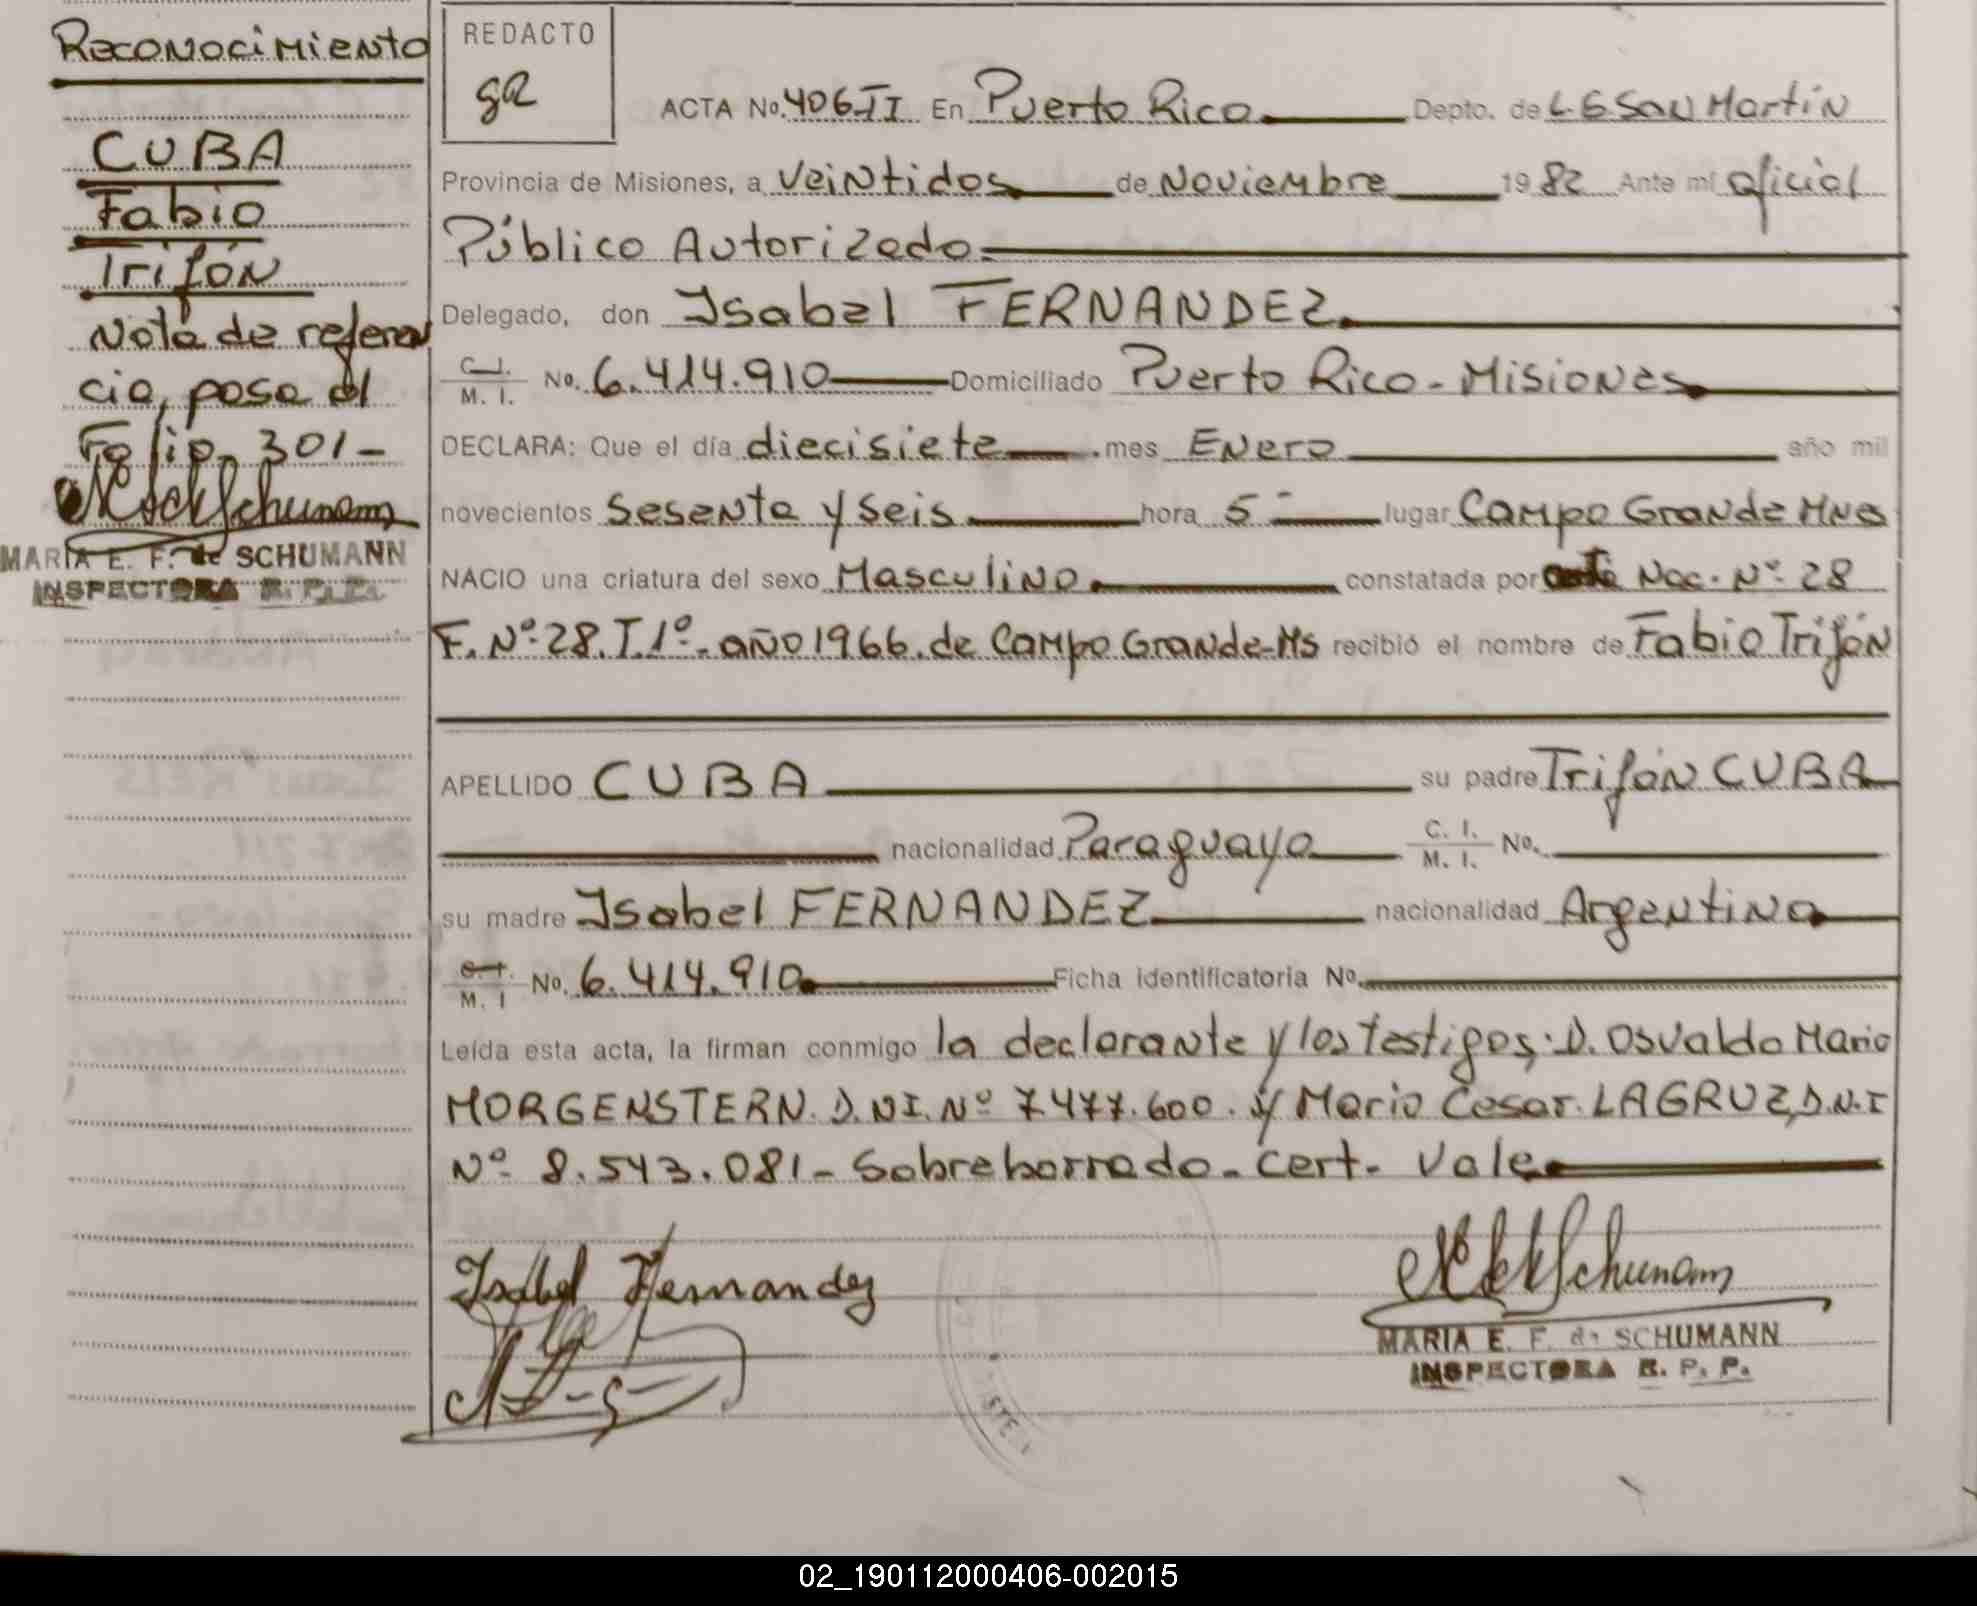 Reconocimiento
CUBA
Fabio
Trifón
Nota de referen
cia, pasa al
Folio 301-
MARIA E. F. de SCHUMANN
INSPECTORA R. P. P.
REDACTO
ACTA No. 406 II En Puerto Rico Depto. de L G San Martín
Provincia de Misiones, a veintidos de Noviembre 1982 Ante mi oficial
Público Autorizado.
Delegado, don Isabel FERNANDEZ
C. I. / M. I. No. 6.414.910 Domiciliado Puerto Rico - Misiones
DECLARA: Que el día diecisiete mes Enero año mil
novecientos sesenta y seis hora 5 lugar Campo Grande Mnes
NACIO una criatura del sexo Masculino constatada por Nac. Nº 28
F. Nº 28. T. 1º - año 1966. de Campo Grande-Ms recibió el nombre de Fabio Trifón
APELLIDO CUBA su padre Trifón CUBA
nacionalidad Paraguaya C. I. / M. I. No.
su madre Isabel FERNANDEZ nacionalidad Argentina
C. I. / M. I No. 6.414.910 Ficha identificatoria No.
Leída esta acta, la firman conmigo la declarante y los testigos; D. Osvaldo Mario
MORGENSTERN. D.NI. Nº 7477.600. y Mario Cesar. LAGRUZ, D.N.I
Nº 8.543.081 - Sobreborrado - cert. Vale
Isabel Fernandez
MARIA E. F. de SCHUMANN
INSPECTORA R. P. P.
02_190112000406-002015